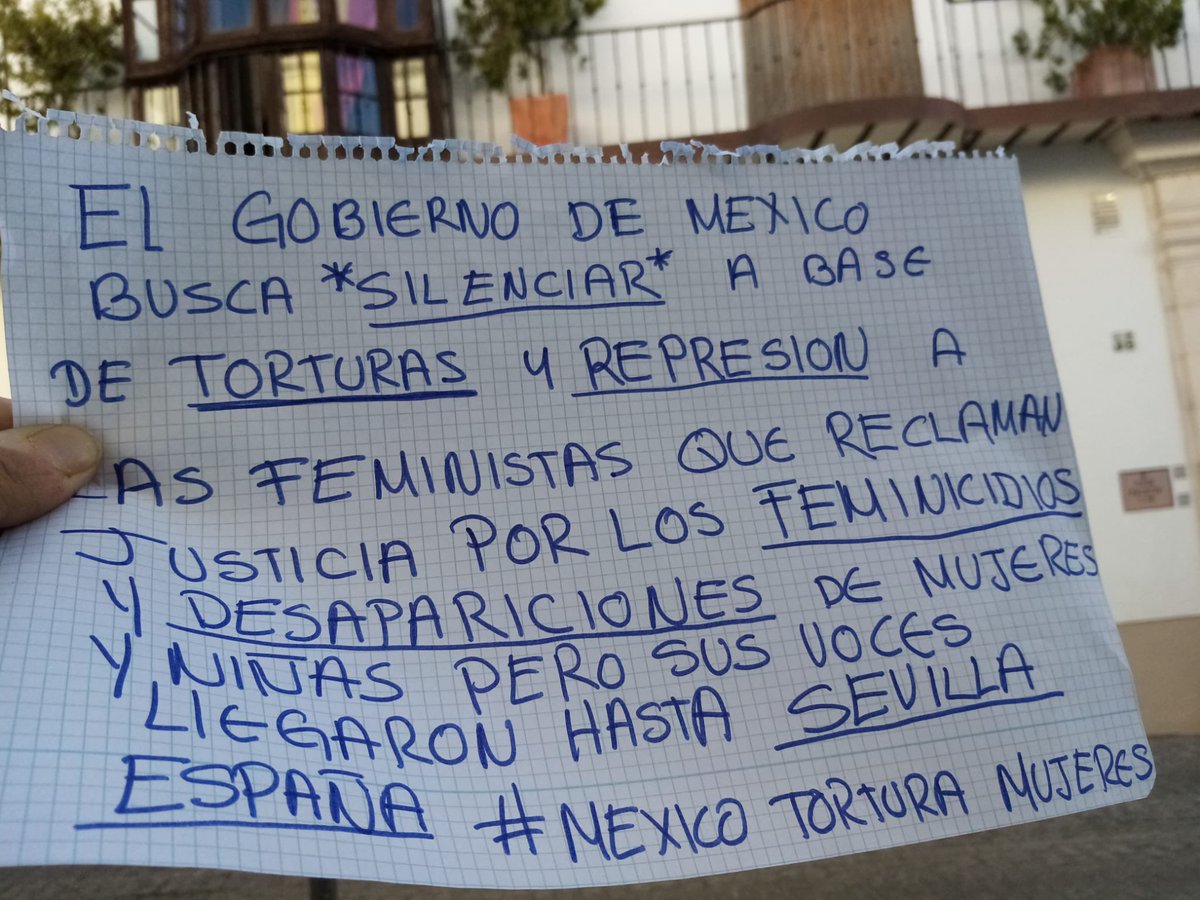 EL GOBIERNO DE MEXICO
BUSCA *SILENCIAR* A BASE
DE TORTURAS Y REPRESION A
LAS FEMINISTAS QUE RECLAMAN
JUSTICIA POR LOS FEMINICIDIOS
Y DESAPARICIONES DE MUJERES
Y NIÑAS PERO SUS VOCES
LlEGARON HASTA SEVILLA
ESPAÑA #MEXICO TORTURA MUJERES